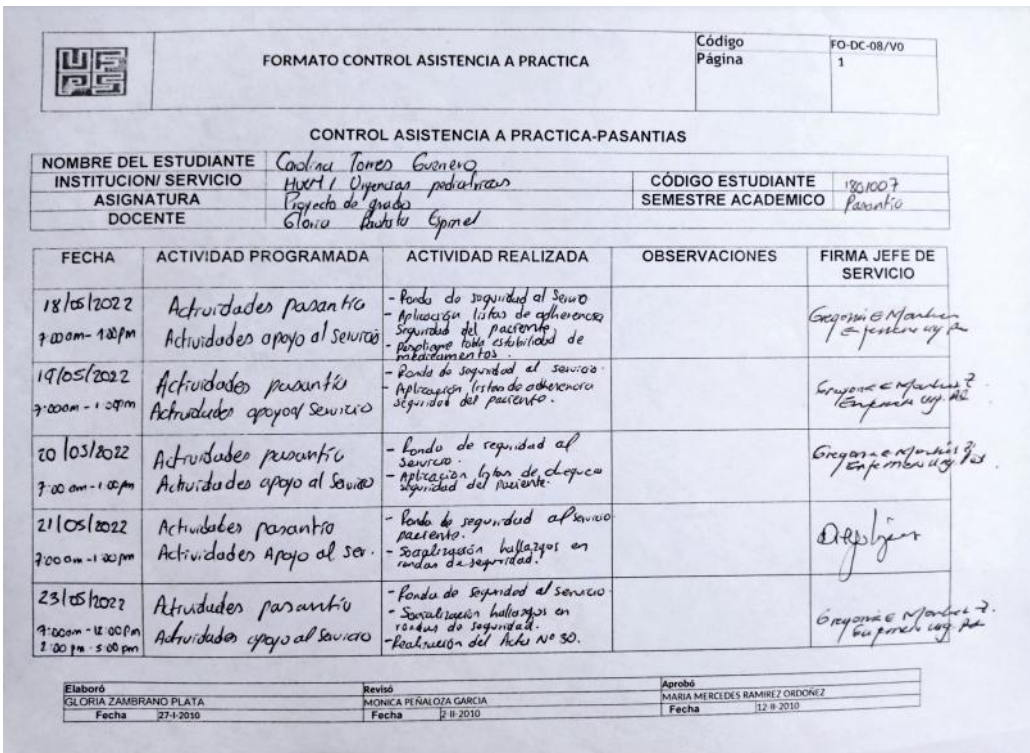 UFPS
FORMATO CONTROL ASISTENCIA A PRACTICA
Código FO-DC-08/V0
Página 1
CONTROL ASISTENCIA A PRACTICA-PASANTIAS
NOMBRE DEL ESTUDIANTE Carolina Torres Guerrero
INSTITUCION/ SERVICIO HUEM / Urgencias pediatricas
CÓDIGO ESTUDIANTE 1801007
ASIGNATURA Proyecto de grado
SEMESTRE ACADEMICO Pasantia
DOCENTE Gloria Bautista Espinel
FECHA ACTIVIDAD PROGRAMADA ACTIVIDAD REALIZADA OBSERVACIONES FIRMA JEFE DE SERVICIO
18/05/2022
7:00am - 1:00pm
Actividades pasantia
Actividades apoyo al servicio
- Ronda de seguridad al Servicio
- Aplicación listas de adherencia
Seguridad del paciente
- Despliegue tabla estabilidad de
medicamentos.
19/05/2022
7:00am - 1:00pm
Actividades pasantía
Actividades apoyo al Servicio
- Ronda de seguridad al servicio.
- Aplicación listas de adherencia
seguridad del paciente.
20/05/2022
7:00 am - 1:00pm
Actividades pasantía
Actividades apoyo al Servicio
- Ronda de seguridad al
servicio.
- Aplicación listas de chequeo
seguridad del paciente.
21/05/2022
7:00am - 1:00pm
Actividades pasantia
Actividades Apoyo al ser.
- Ronda de seguridad al servicio
paciente.
- Socialización hallazgos en
rondas de seguridad.
23/05/2022
7:00am - 12:00pm
2:00 pm - 5:00 pm
Actividades pasantía
Actividades apoyo al Servicio
- Ronda de Seguridad al servicio
- Socialización hallazgos en
rondas de seguridad.
- Realización del Acta Nº 30.
Elaboró
GLORIA ZAMBRANO PLATA
Fecha 27-I-2010
Revisó
MONICA PEÑALOZA GARCIA
Fecha 2-II-2010
Aprobó
MARIA MERCEDES RAMIREZ ORDOÑEZ
Fecha 12-II-2010